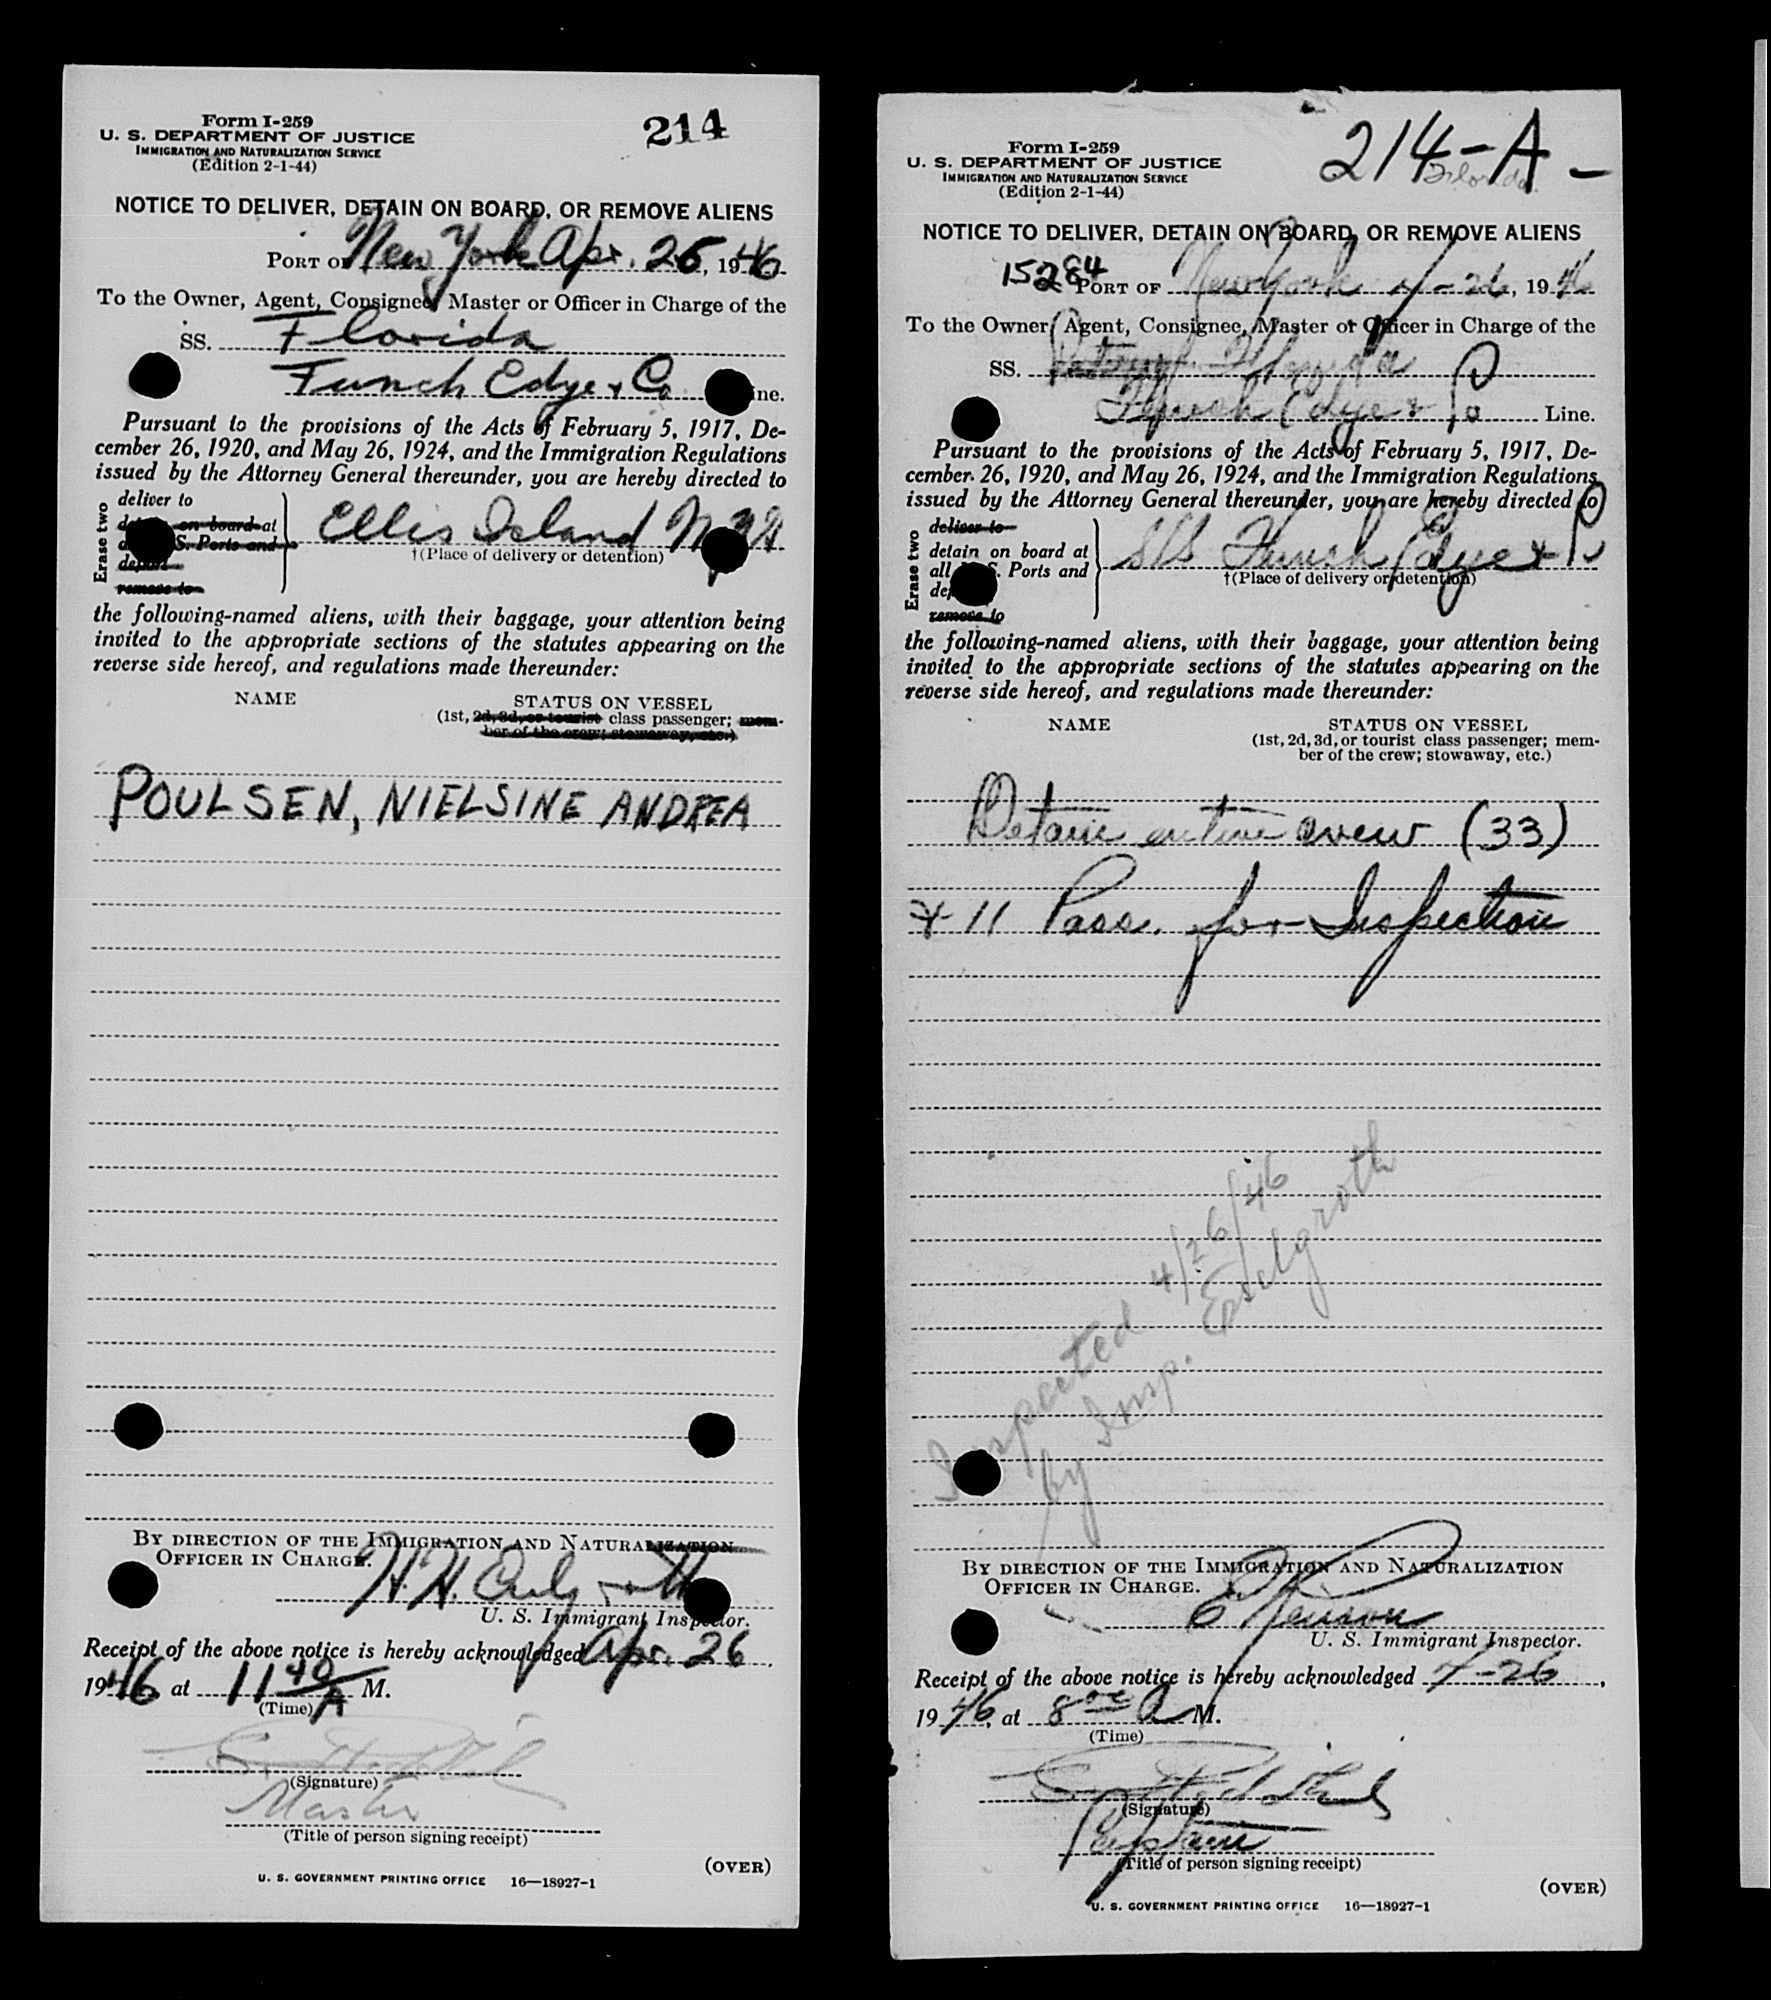 Form I-259
U. S. DEPARTMENT OF JUSTICE
IMMIGRATION AND NATURALIZATION SERVICE
(Edition 2-1-44)
214
NOTICE TO DELIVER, DETAIN ON BOARD, OR REMOVE ALIENS
PORT OF New York Apr. 26, 1946
To the Owner, Agent, Consignee, Master or Officer in Charge of the
SS. Florida
Funch Edye & Co Line.
Pursuant to the provisions of the Acts of February 5, 1917, De-
cember 26, 1920, and May 26, 1924, and the Immigration Regulations
issued by the Attorney General thereunder, you are hereby directed to
Erase two
deliver to
on board at
S. Ports and
remove to
Ellis Island N.Y.H
†(Place of delivery or detention)
the following-named aliens, with their baggage, your attention being
invited to the appropriate sections of the statutes appearing on the
reverse side hereof, and regulations made thereunder:
NAME
STATUS ON VESSEL
(1st, 2d, 3d, or tourist class passenger; mem-
ber of the crew; stowaway, etc.)
POULSEN, NIELSINE ANDREA
BY DIRECTION OF THE IMMIGRATION AND NATURALIZATION
OFFICER IN CHARGE.
H.H.
U. S. Immigrant Inspector.
Receipt of the above notice is hereby acknowledged Apr. 26
1946 at 11 40/A M.
(Time)
(Signature)
Master
(Title of person signing receipt)
(OVER)
U. S. GOVERNMENT PRINTING OFFICE 16—18927-1
Form I-259
U. S. DEPARTMENT OF JUSTICE
IMMIGRATION AND NATURALIZATION SERVICE
(Edition 2-1-44)
214-A-
Florida
NOTICE TO DELIVER, DETAIN ON BOARD, OR REMOVE ALIENS
15284
PORT OF New York 4-26, 1946
To the Owner, Agent, Consignee, Master or Officer in Charge of the
SS. Florida
Funch Edye & Co Line.
Pursuant to the provisions of the Acts of February 5, 1917, De-
cember 26, 1920, and May 26, 1924, and the Immigration Regulations
issued by the Attorney General thereunder, you are hereby directed to
Erase two
deliver to
detain on board at
all U. S. Ports and
remove to
S/S Funch Edye & Co
†(Place of delivery or detention)
the following-named aliens, with their baggage, your attention being
invited to the appropriate sections of the statutes appearing on the
reverse side hereof, and regulations made thereunder:
NAME
STATUS ON VESSEL
(1st, 2d, 3d, or tourist class passenger; mem-
ber of the crew; stowaway, etc.)
Detain entire crew (33)
& 11 Pass. for Inspection
Inspected 4/26/46
by Insp.
BY DIRECTION OF THE IMMIGRATION AND NATURALIZATION
OFFICER IN CHARGE.
U. S. Immigrant Inspector.
Receipt of the above notice is hereby acknowledged 4-26,
1946, at 8 00 A M.
(Time)
(Signature)
Captain
(Title of person signing receipt)
(OVER)
U. S. GOVERNMENT PRINTING OFFICE 16—18927-1